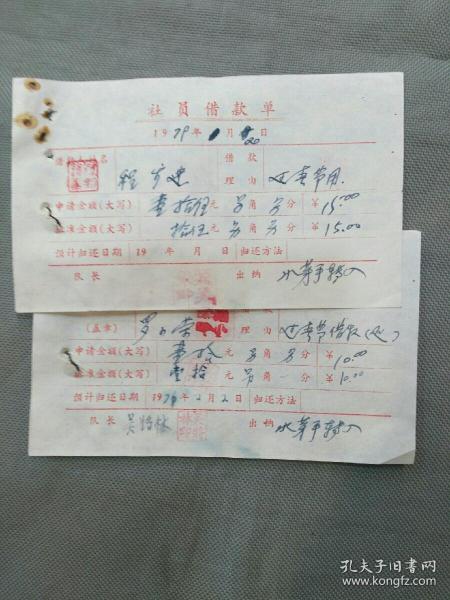 社员借款单
1979年1月20日
借款人姓名 程 借款
理由 过春节用
申请金额(大写) 壹拾伍元 另角 另分 ¥15.00
批准金额(大写) 拾伍元 另角 另分 ¥15.00
预计归还日期 19 年 月 日 归还方法
队长 出纳
(盖章) 罗 荣 理由 过春节借支
申请金额(大写) 壹拾元 另角 另分 ¥10.00
批准金额(大写) 壹拾元 另角 分 ¥10.00
预计归还日期 1979年2月2日 归还方法
队长 吴 林 出纳
孔夫子旧书网
www.kongfz.com